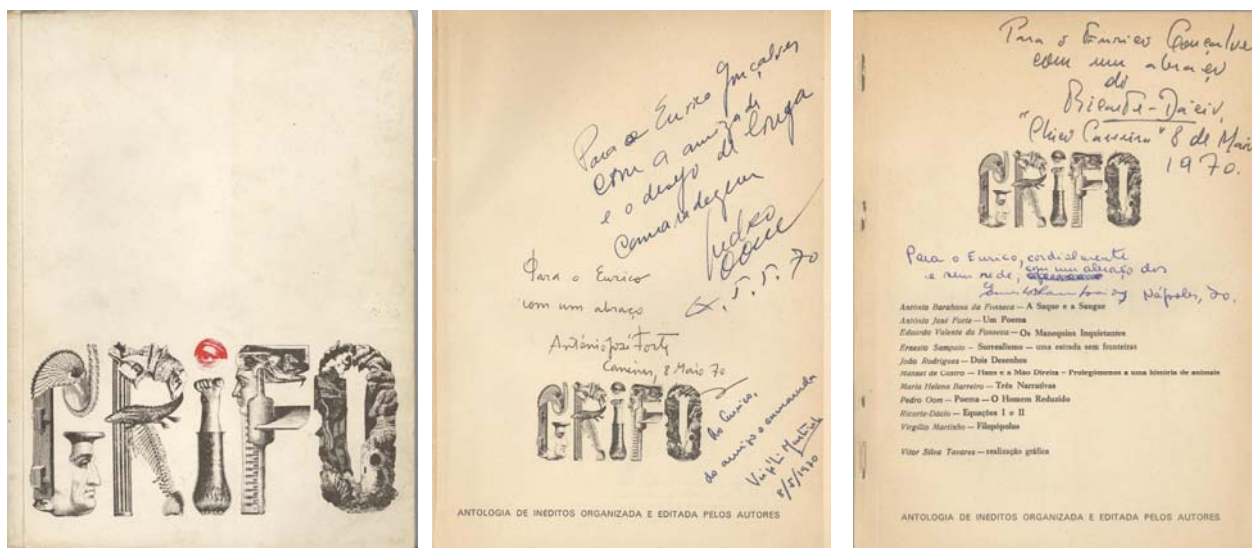 GRiFO
Para o Eurico Gonçalves
com a amizade
e o desejo de longa
camaradagem
Pedro
Oom
5.5.70
Para o Eurico
com um abraço
António José Forte
8 Maio 70
GRiFO
Ao Eurico,
do amigo e camarada
Virgílio Martinho
8/5/1970
ANTOLOGIA DE INEDITOS ORGANIZADA E EDITADA PELOS AUTORES
Para o Eurico Gonçalves
com um abraço
do
Ricarte-Dácio,
8 de Maio
1970.
GRiFO
Para o Eurico, cordialmente
e sem rede, com um abraço dos
Nápoles, do.
António Barahona da Fonseca — A Saque e a Sangue
António José Forte — Um Poema
Eduardo Valente da Fonseca — Os Manequins Inquietantes
Ernesto Sampaio — Surrealismo — uma estrada sem fronteiras
João Rodrigues — Dois Desenhos
Manuel de Castro — Hans e a Mão Direita — Prolegómenos a uma história de animais
Maria Helena Barreiro — Três Narrativas
Pedro Oom — Poema — O Homem Reduzido
Ricarte-Dácio — Equações I e II
Virgílio Martinho — Filopópolus
Vitor Silva Tavares — realização gráfica
ANTOLOGIA DE INEDITOS ORGANIZADA E EDITADA PELOS AUTORES